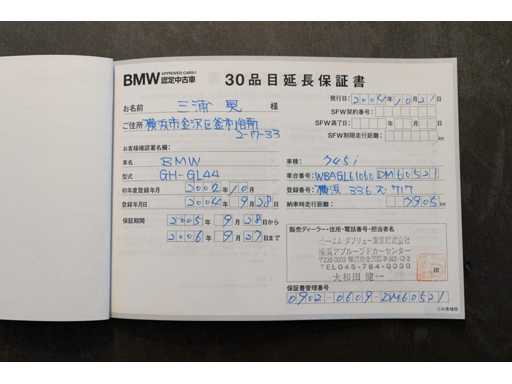 BMW APPROVED CARS 認定中古車 30品目延長保証書
発行日: 2004年10月21日
お名前 三浦 晃 様
SFW契約番号:
SFW満了日: 年 月 日
SFW制限走行距離:
ご住所 横浜市金沢区釜利谷南
2-17-33
お客様確認署名欄:
車名 BMW
車種: 745i
型式 GH-GL44
車台番号: WBAGL61060DM60521
初年度登録年月 2002年10月
登録番号: 横浜 336 ス 717
登録年月日 2004年9月28日
納車時走行距離: 7905km
保証期間 2005年9月28日から
2006年9月27日まで
販売ディーラー・住所・電話番号・担当者名
ビー・エム・ダブリュー東京株式会社
TEL045-784-0099
大和田 健一
印
保証書管理番号
0902-0609-DM60521